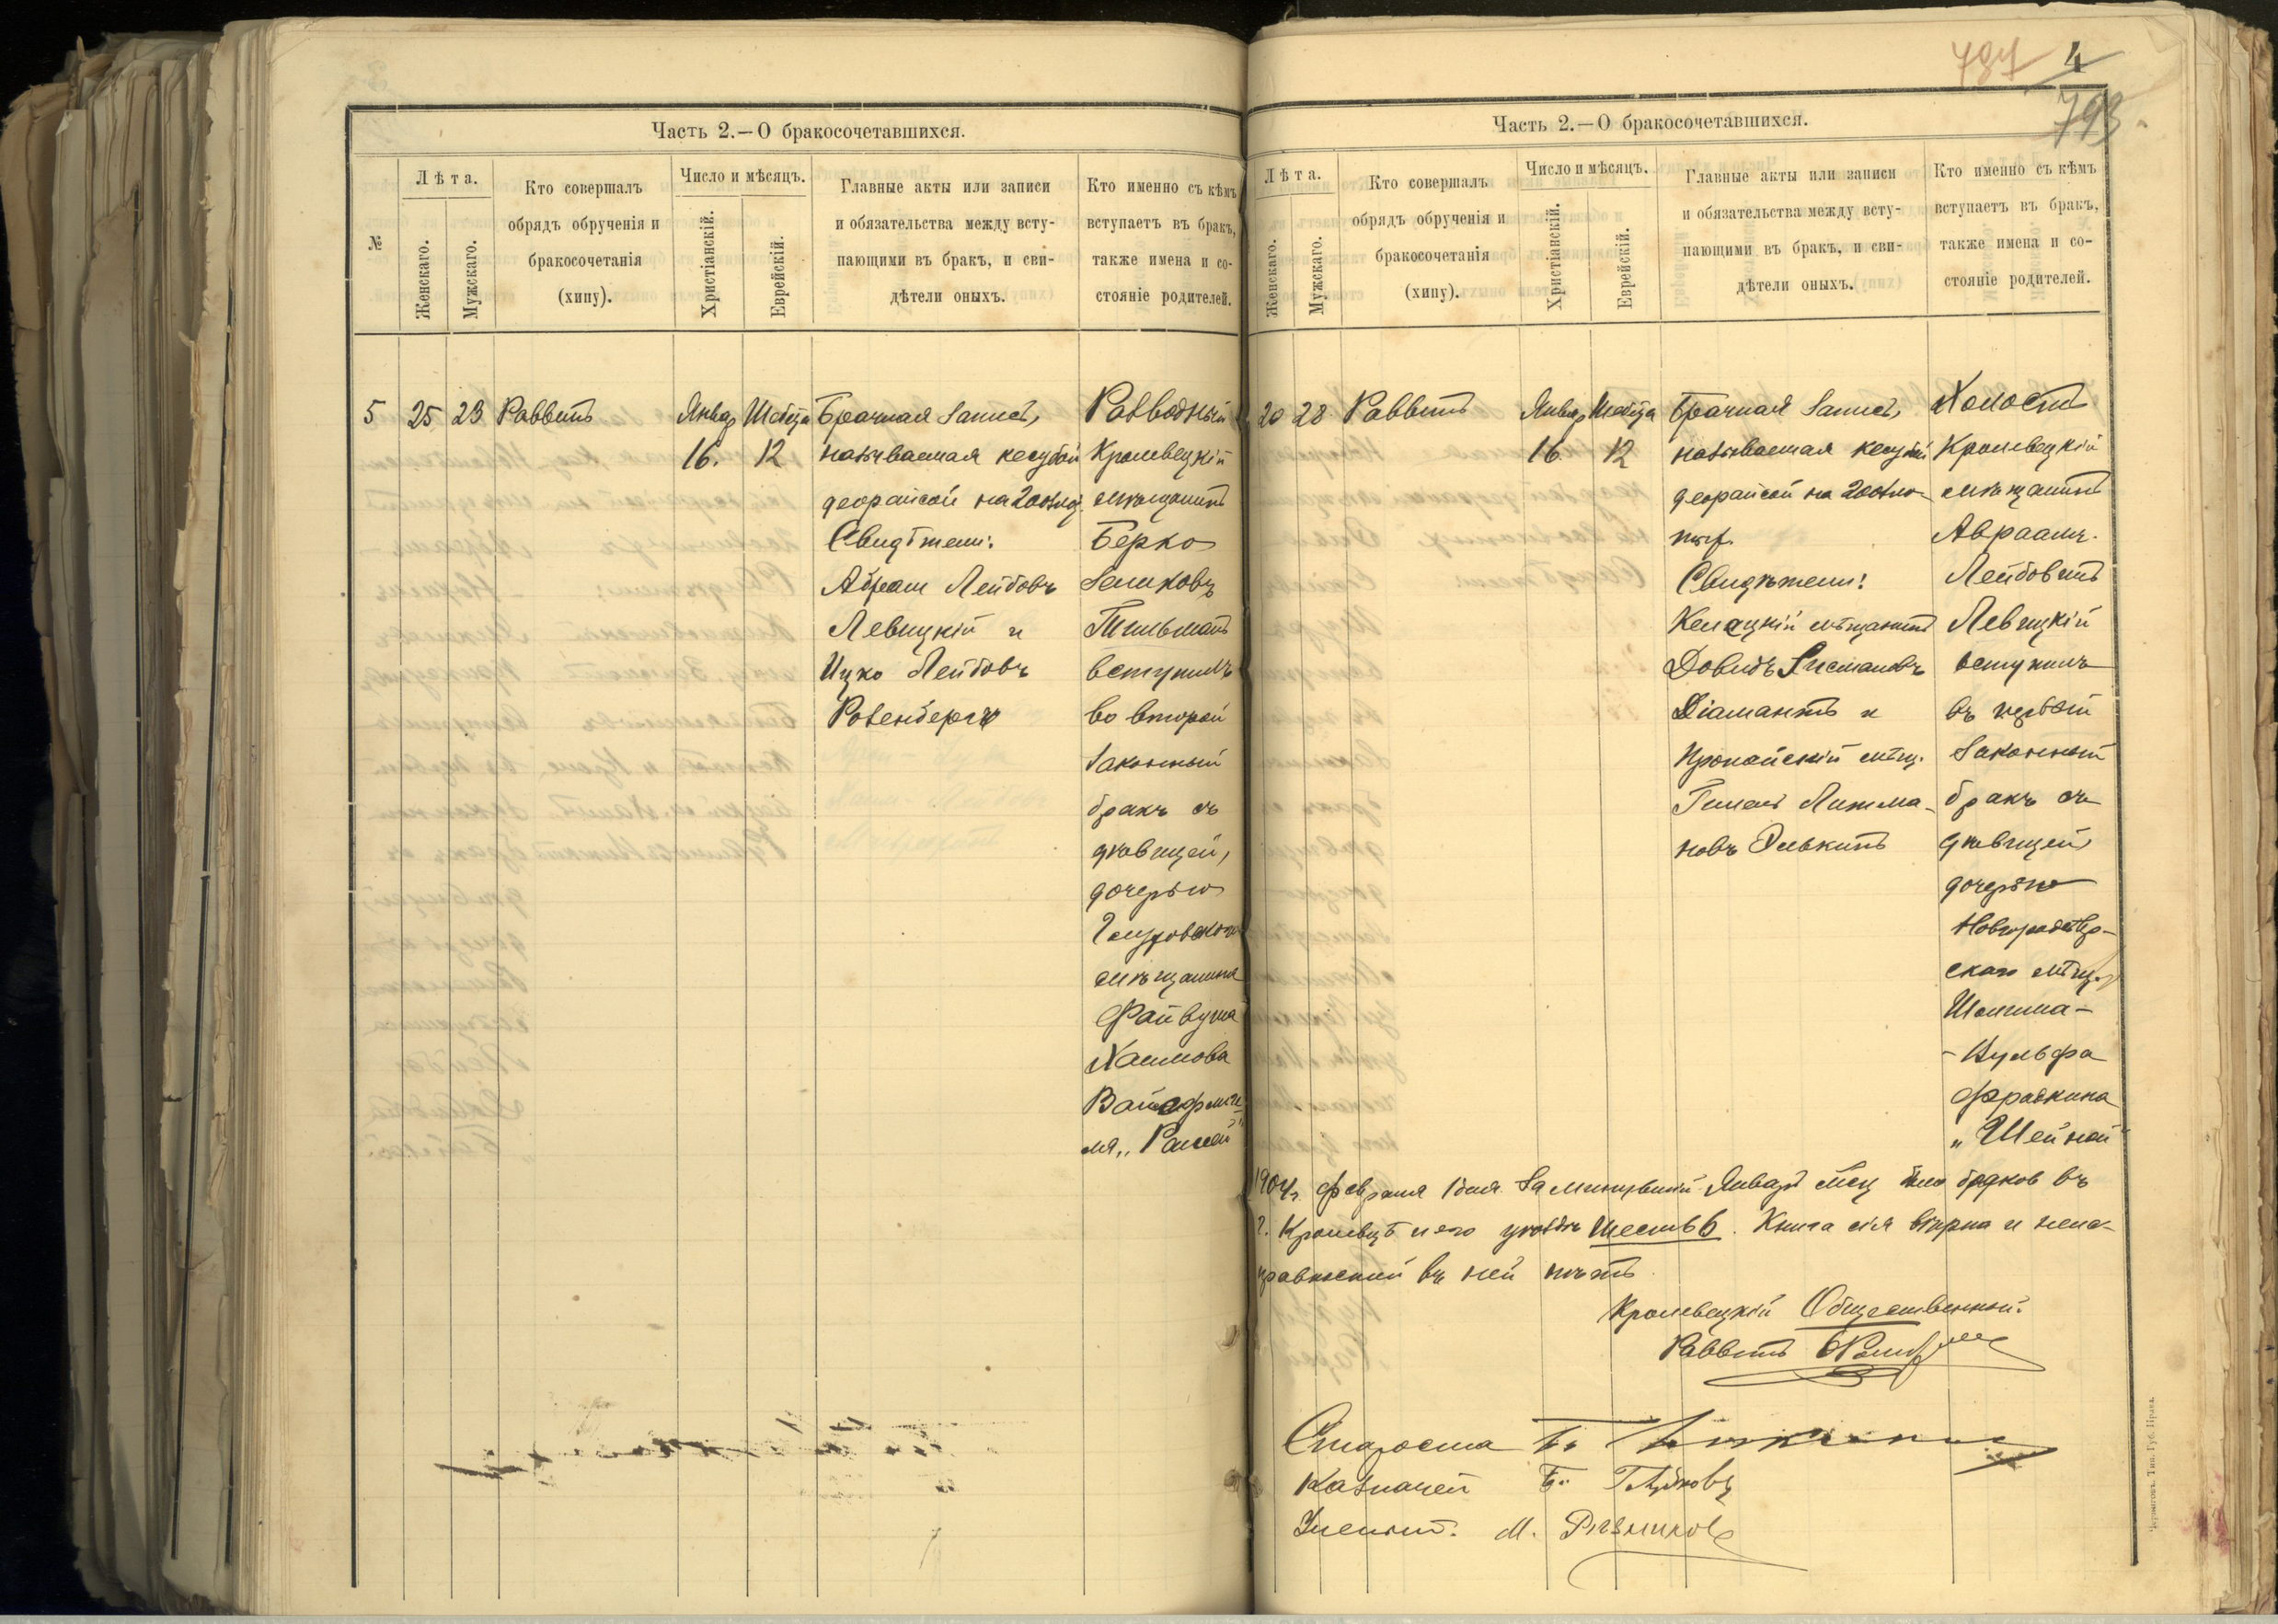 787 4
793
Часть 2.—О бракосочетавшихся.
№
Лѣта.
Женскаго.
Мужскаго.
Кто совершалъ
обрядъ обрученія и
бракосочетанія
(хипу).
Число и мѣсяцъ.
Христіанскій.
Еврейскій.
Главные акты или записи
и обязательства между всту-
пающими въ бракъ, и сви-
дѣтели оныхъ.
Кто именно съ кѣмъ
вступаетъ въ бракъ,
также имена и со-
стояніе родителей.
5
25
23
Раввинъ
Январ
16.
Шевета
12
Брачная запись,
называемая кесубой
деорайсой на 200 злот.
Свидѣтели:
Абрам Лейбовъ
Левицкій и
Ицко Лейбовъ
Розенбергъ
Разводный
Кролевецкій
мѣщанинъ
Берко
Залковъ
вступилъ
во второй
законный
бракъ съ
дѣвицей,
дочерью
мѣщанина
Файвуша
Хаимова
Часть 2.—О бракосочетавшихся.
Лѣта.
Женскаго.
Мужскаго.
Кто совершалъ
обрядъ обрученія и
бракосочетанія
(хипу).
Число и мѣсяцъ.
Христіанскій.
Еврейскій.
Главные акты или записи
и обязательства между всту-
пающими въ бракъ, и сви-
дѣтели оныхъ.
Кто именно съ кѣмъ
вступаетъ въ бракъ,
также имена и со-
стояніе родителей.
20
28
Раввинъ
Январ
16
Шевета
12
Брачная запись,
называемая кесубой
деорайсой на 200 зло-
тых.
Свидѣтели:
мѣщанинъ
Довидъ
Діамантъ и
мѣщ.
Холостъ
Кролевецкій
мѣщанинъ
Авраамъ
Лейбовичъ
Левицкій
вступилъ
въ первый
законный
бракъ съ
дѣвицей,
дочерью
Новгородсѣвер-
скаго мѣщ.
-Вульфа
Фрадкина
„Шейной"
1904г. февраля 1 дня. За минувшій Январь мсц было браков въ
г. Кролевцѣ и его уѣздѣ шесть 6. Книга сія вѣрна и непо-
правленій въ ней нѣтъ.
Кролевецкій Общественный
Раввинъ
Староста Б.
Казначей Б.
Ученый. М. Рѣзников
Черниговъ. Тип. Губ. Правл.